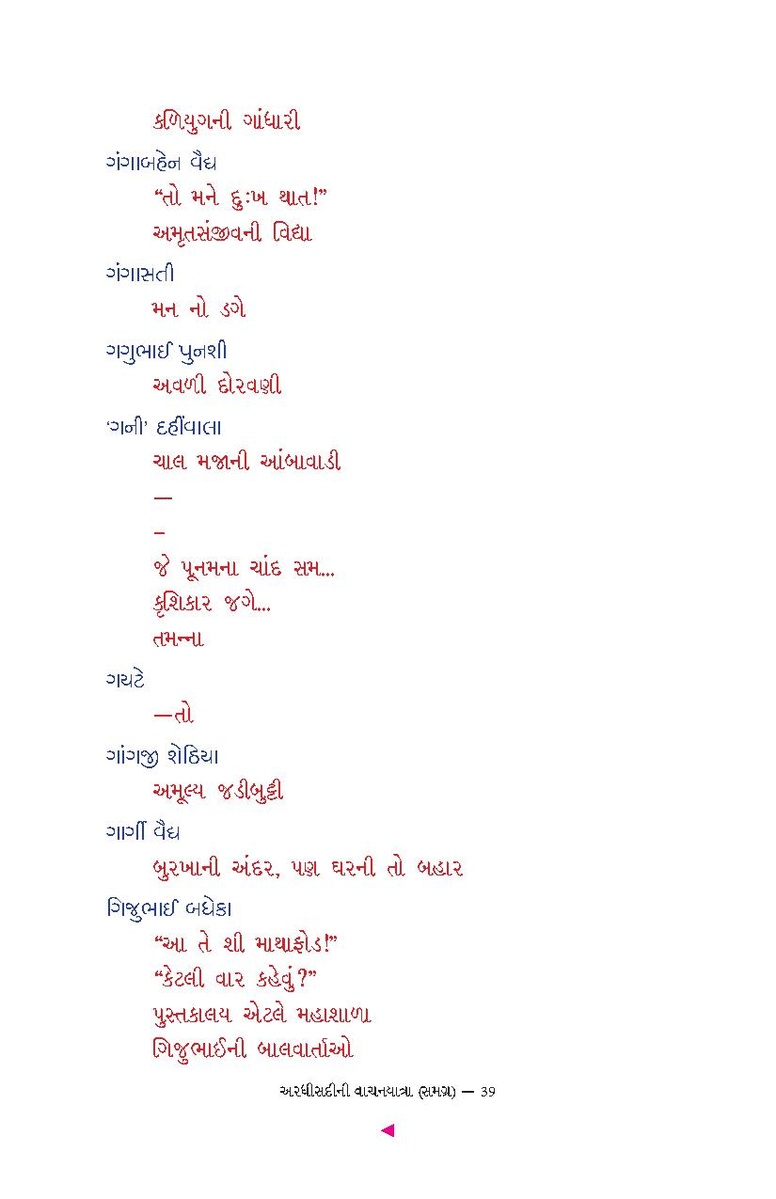 કળિયુગની ગાંધારી
ગંગાબહેન વૈદ્ય
“તો મને દુઃખ થાત!”
અમૃતસંજીવની વિદ્યા
ગંગાસતી
મન નો ડગે
ગગુભાઈ પુનશી
અવળી દોરવણી
‘ગની’ દહીંવાલા
ચાલ મજાની આંબાવાડી
—
–
જે પૂનમના ચાંદ સમ...
કૃશિકાર જગે...
તમન્ના
ગયટે
—તો
ગાંગજી શેઠિયા
અમૂલ્ય જડીબુટ્ટી
ગાર્ગી વૈદ્ય
બુરખાની અંદર, પણ ઘરની તો બહાર
ગિજુભાઈ બધેકા
“આ તે શી માથાફોડ!”
“કેટલી વાર કહેવું?”
પુસ્તકાલય એટલે મહાશાળા
ગિજુભાઈની બાલવાર્તાઓ
અરધીસદીની વાચનયાત્રા (સમગ્ર) — 39